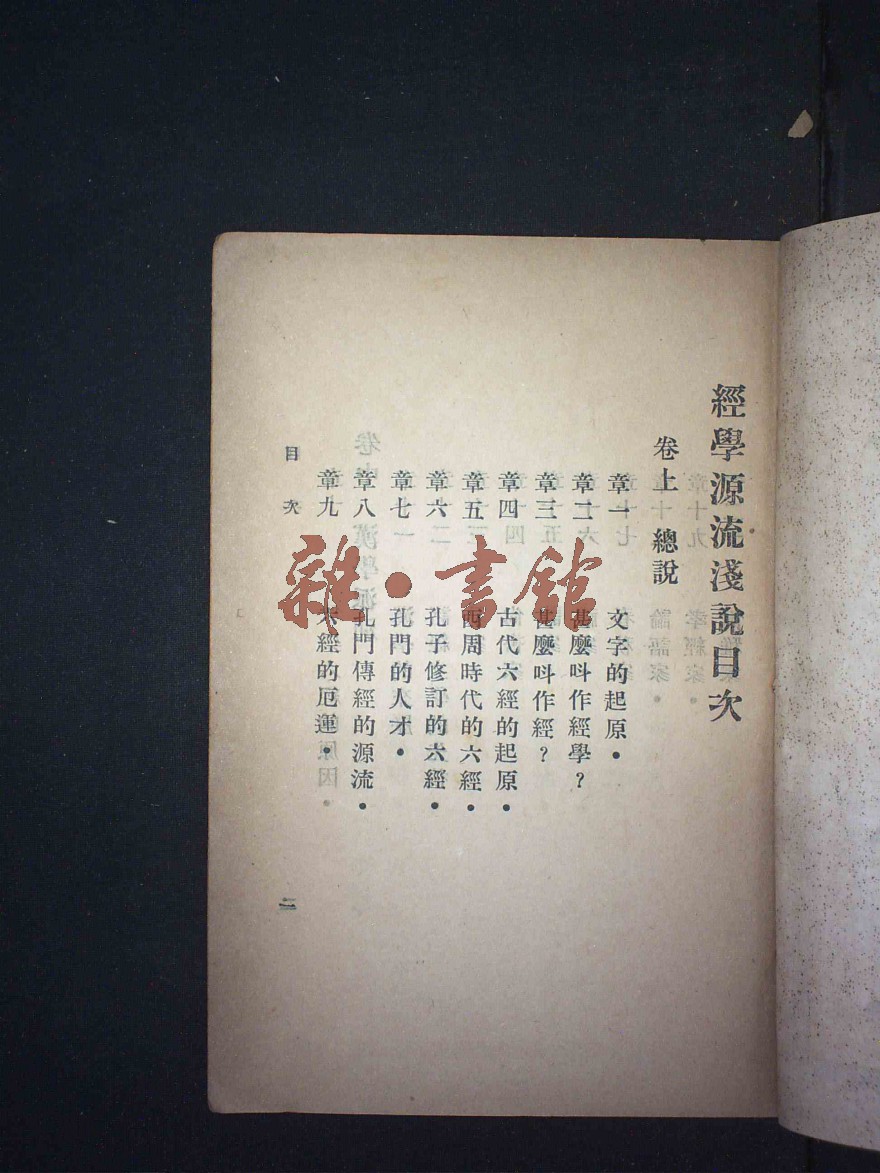 經學源流淺說目次
卷上 總說
章一 文字的起原•
章二 甚麼呌作經學？
章三 甚麼呌作經？
章四 古代六經的起原•
章五 西周時代的六經•
章六 孔子修訂的六經•
章七 孔門的人才•
章八 孔門傳經的源流•
章九 六經的厄運•
目次
二
雜•書館